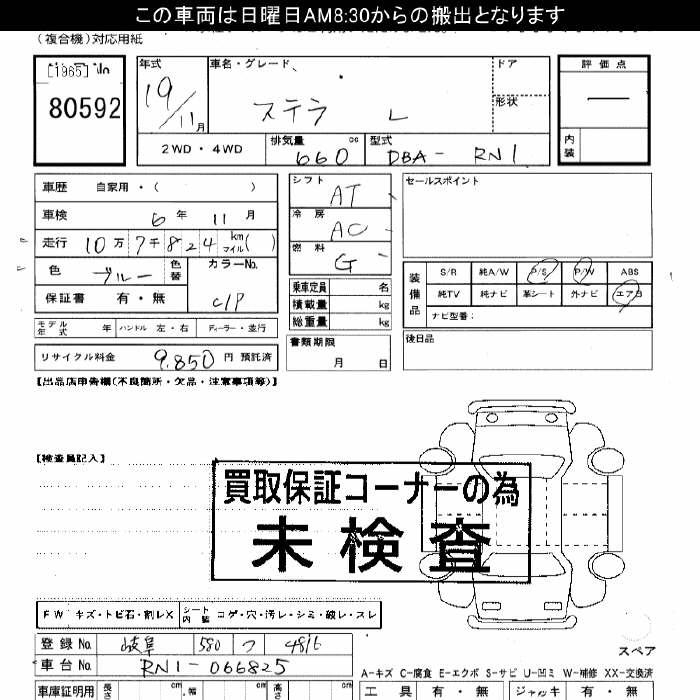 この車両は日曜日AM8:30からの搬出となります
(複合機)対応用紙
80592
年式
19/11月
車名・グレード
ステラ L
ドア
形状
評価点
—
内装
2WD・4WD
排気量 cc
660
型式
DBA- RN1
車歴 自家用・( )
車検 6年 11月
走行 10万7千824 km マイル( )
色 ブルー 色替
カラーNo.
C/P
保証書 有・無
シフト AT
冷房 AC
燃料 G
乗車定員 名
積載量 kg
総重量 kg
書類期限
月 日
セールスポイント
装備品
S/R 純A/W P/S P/W ABS
純TV 純ナビ 革シート 外ナビ エアB
ナビ型番:
後日品
モデル年式 年 ハンドル 左・右 ディーラー・並行
リサイクル料金 9,850 円 預託済
【出品店申告欄(不良箇所・欠品・注意事項等)】
【検査員記入】
買取保証コーナーの為
未検査
FW キズ・トビ石・割レX
シート内装 コゲ・穴・汚レ・シミ・破レ・スレ
登録No. 岐阜 580 ツ 4816
車台No. RN1-066825
スペア
A-キズ C-腐食 E-エクボ S-サビ U-凹ミ W-補修 XX-交換済
車庫証明用 長さ cm 幅 cm 高さ cm
工具 有・無 ジャッキ 有・無